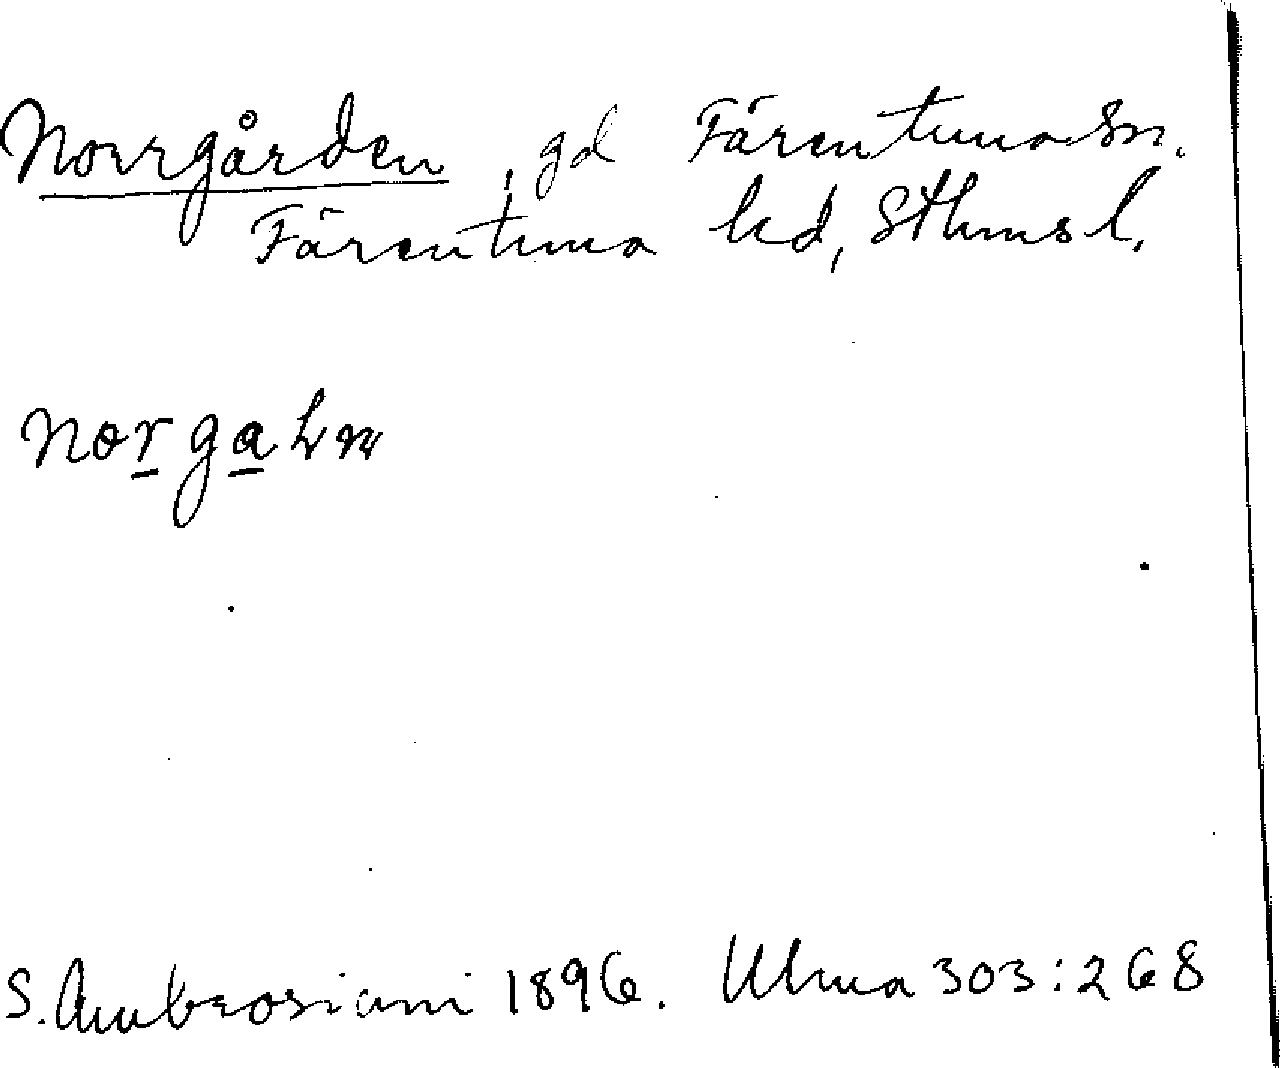 Norrgården, gd Färentuna sn.
Färentuna hd, Sthms l.
S. Ambrosiani 1896. Ulma 303:268